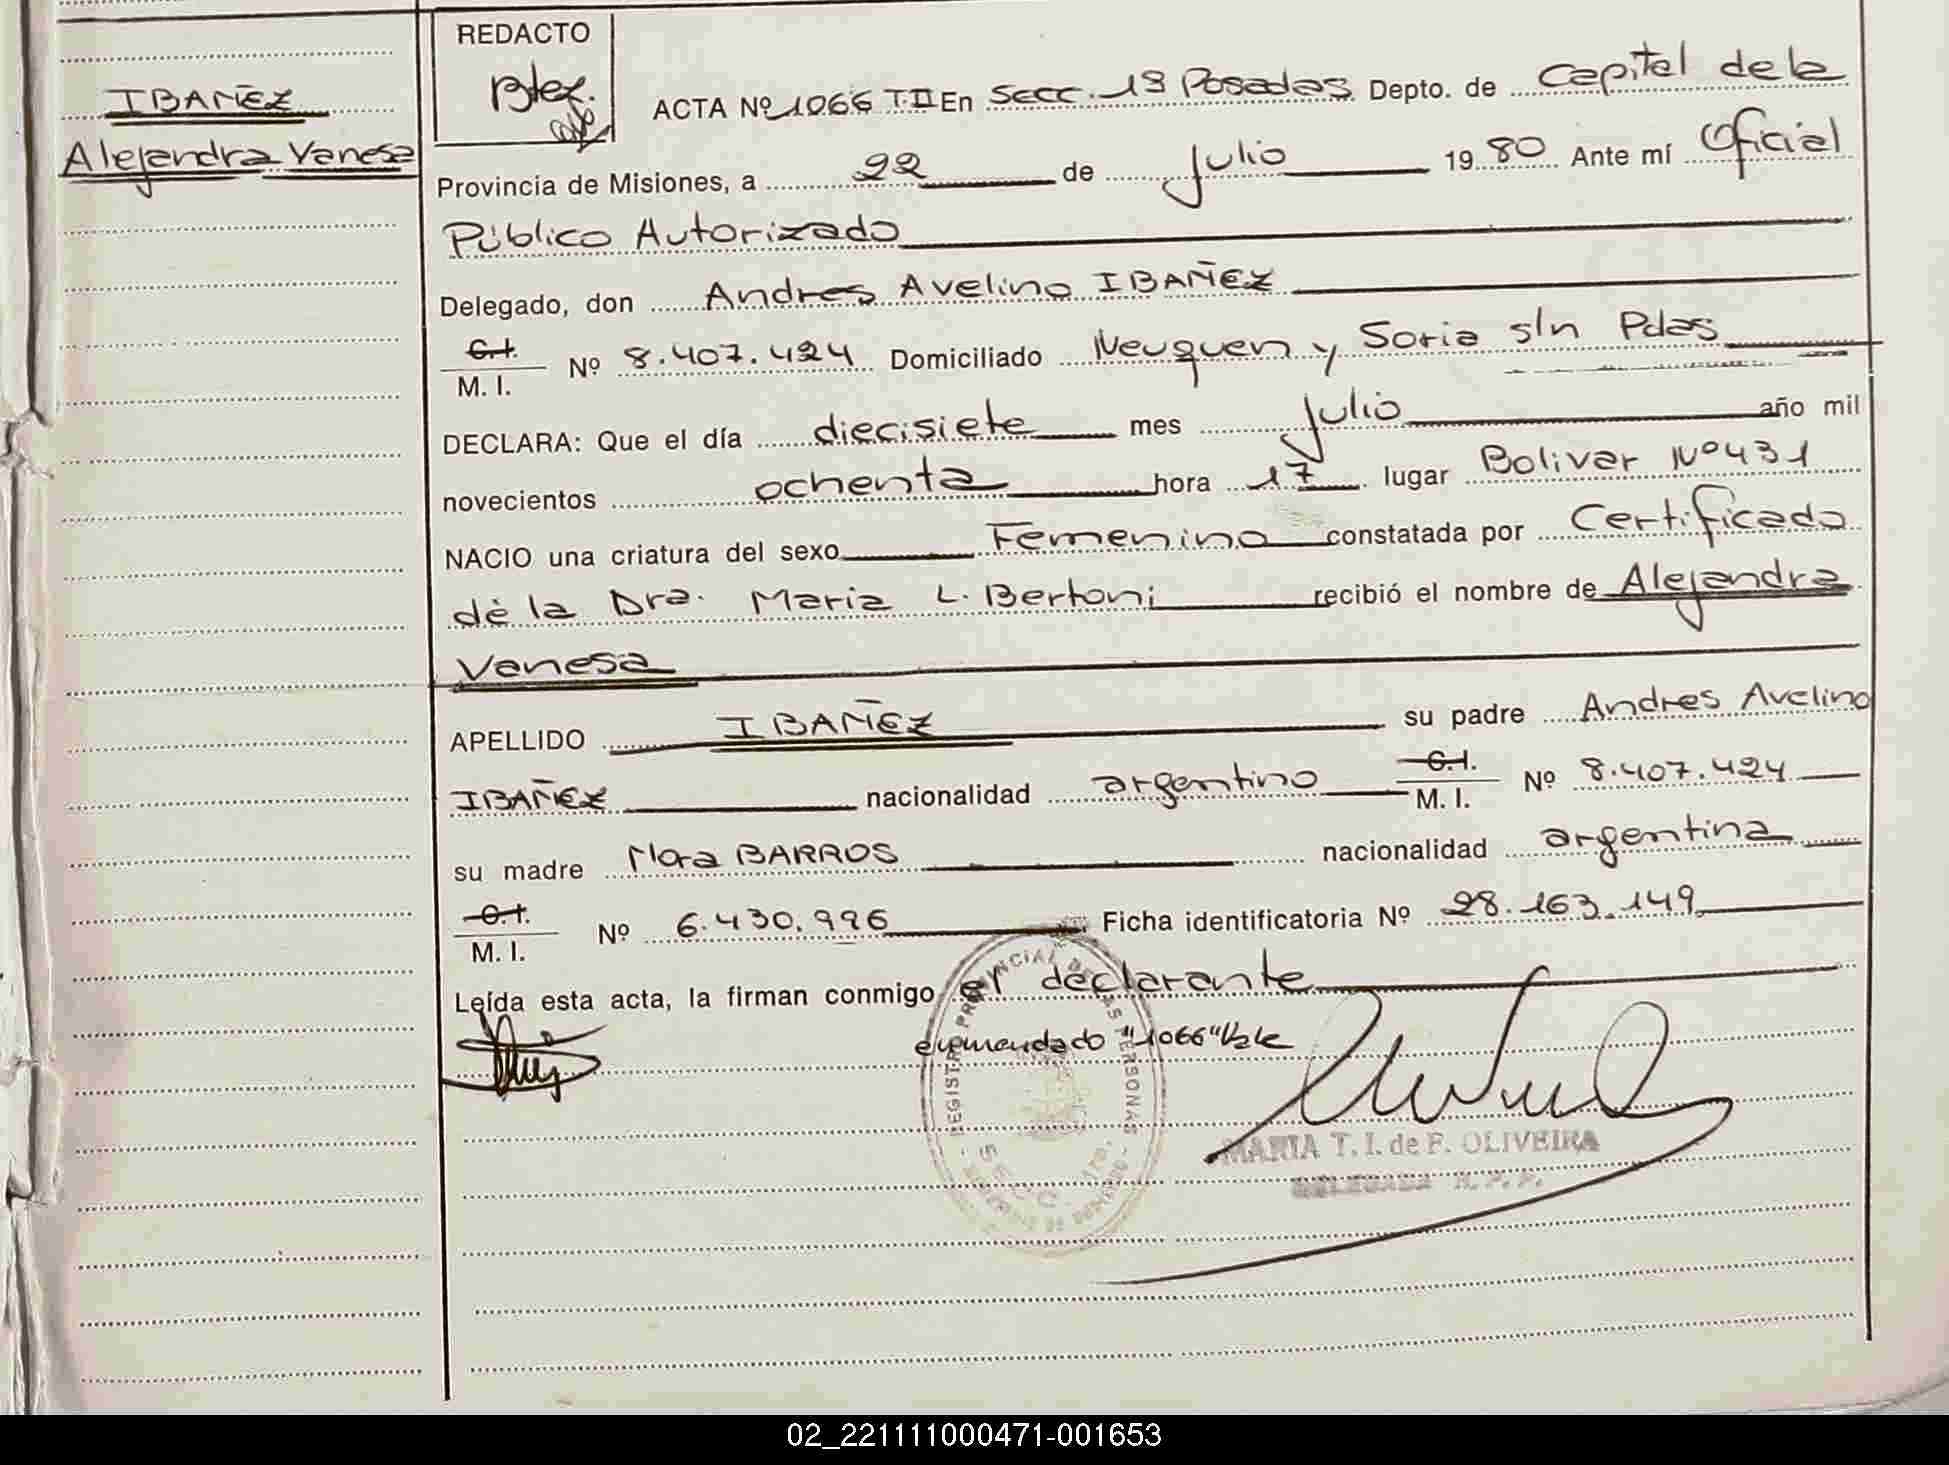 IBAÑEZ
Alejandra Vanesa
REDACTO
ACTA Nº 1066 T.II En Secc. 1ª Posadas Depto. de Capital de la
Provincia de Misiones, a 22 de Julio 1980 Ante mí Oficial
Público Autorizado
Delegado, don Andres Avelino IBAÑEZ
C.I.
M. I. Nº 8.407.424 Domiciliado Neuquen y Soria s/n Pdas
DECLARA: Que el día diecisiete mes Julio año mil
novecientos ochenta hora 17 lugar Bolivar Nº 431
NACIO una criatura del sexo Femenino constatada por Certificado
de la Dra. Maria L. Bertoni recibió el nombre de Alejandra
Vanesa
APELLIDO IBAÑEZ su padre Andres Avelino
IBAÑEZ nacionalidad argentino C.I. M. I. Nº 8.407.424
su madre Mora BARROS nacionalidad argentina
C.I.
M. I. Nº 6.430.996 Ficha identificatoria Nº 28.163.149
Leída esta acta, la firman conmigo el declarante
enmendado "1066" Vale
REGISTRO PROVINCIAL DE LAS PERSONAS
SECC. 1ra.
MARIA T. I. de F. OLIVEIRA
DELEGADA R. P. P.
02_221111000471-001653